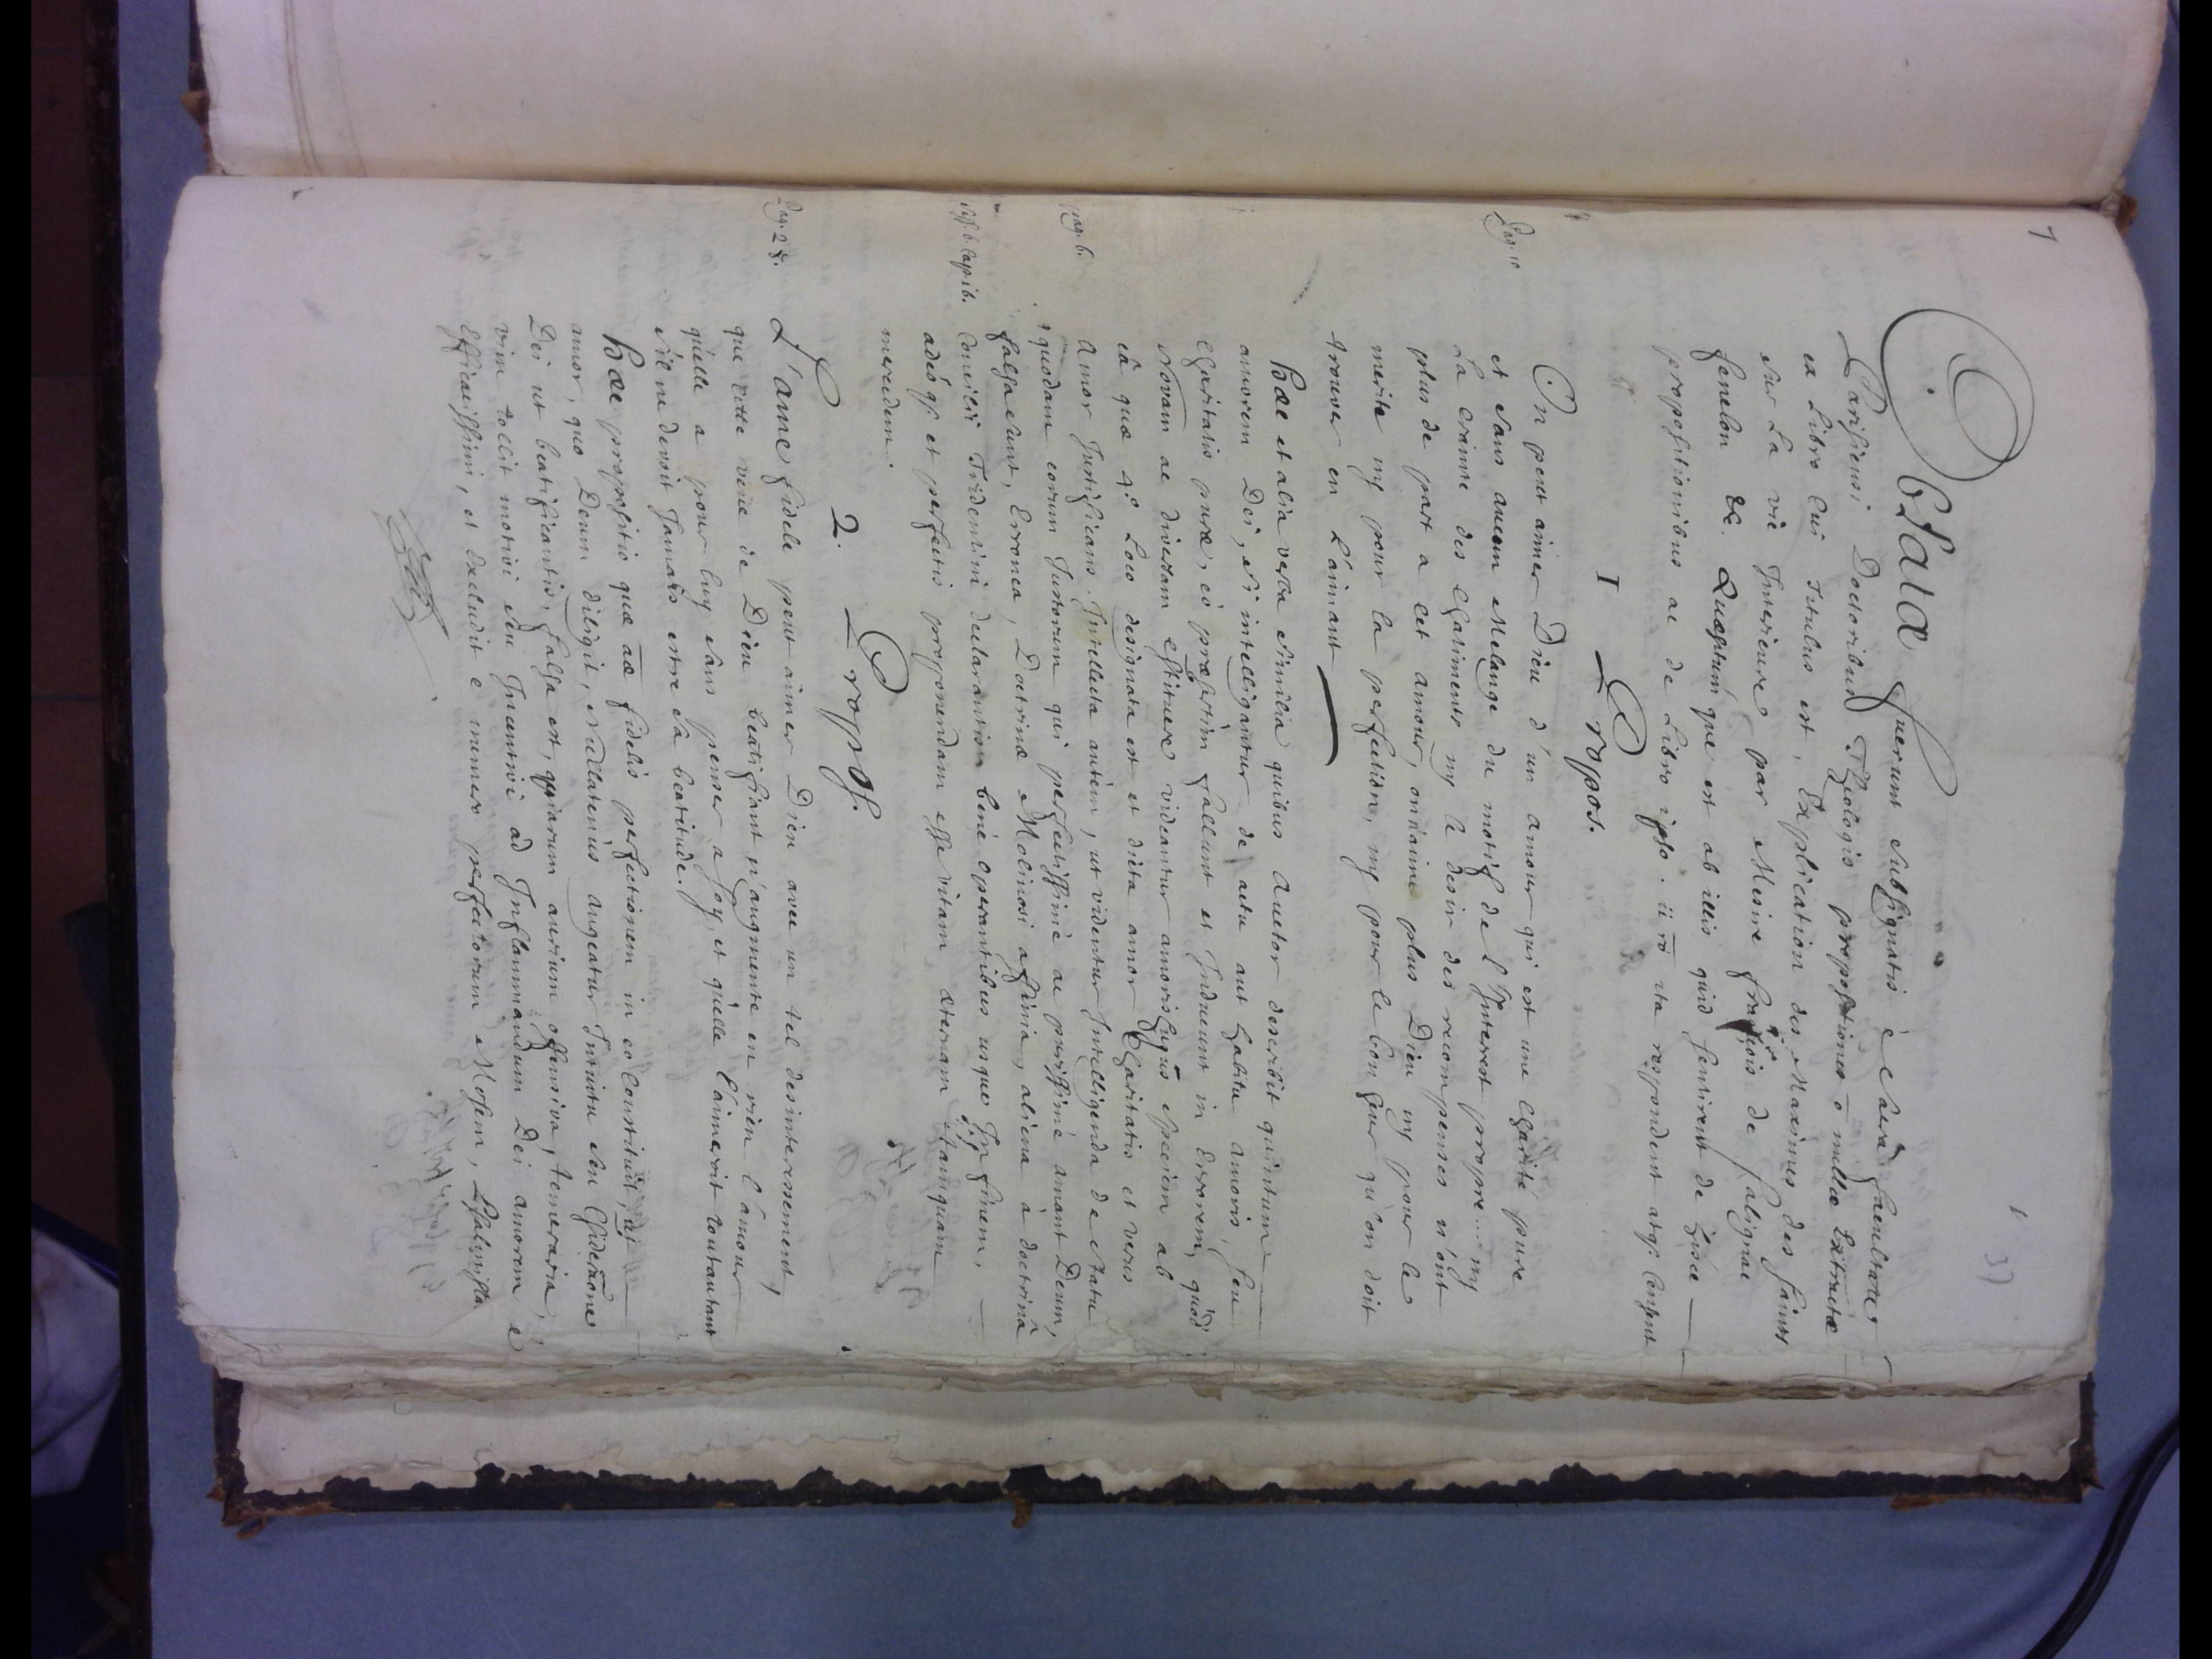 1
1
37
Oblatæ fuerunt subsignatis è Sacrâ facultate
Parisiensi Doctoribus Theologis propositiones nullæ Extractæ
ex Libro cui Titulus est, Explication des Maximes des Saints
sur La vie Interieure par Mesire François de Salignac
fenelon &c. Quæsitumque est ab illis quid sentirent de hisce
propositionibus ac de Libro ipso. ita respondent atq. Censent
1 Propos.
Pag. 10
On peut aimer Dieu d'un amour qui est une Charité pure
et sans aucun Melange du motif de l'Interest propre... ny
La crainte des Chatiments ny le desir des recompenses n'ont
plus de part a cet amour, on n'aime plus Dieu ny pour le
merite ny pour la perfection, ny pour le bonheur qu'on doit
trouver en L'aimant
Hæc et alia verba similia quibus Auctor describit quintum
amorem Dei, si intelligantur de actu aut habitu amoris, seu
Charitatis puræ, eò præsertim fallunt et Inducunt in Errorem, quòd
Novam ac diversam Estituere videantur amoris hujus speciem ab
eâ quæ 4.º Loco designata est et dicta amor Charitatis et verus
pag. 6.
Amor Justificans. Intellecta autem, ut videntur Intelligenda de statu
quodam eorum Justorum qui perfectissimè ac purissimè amant Deum,
falsa sunt, Erronea, Doctrinæ Molinosi affinia, aliena à doctrinâ
Seff. 6. Cap. 16.
Concilii Tridentini declarantis bené operantibus usque In finem,
adeóq; et perfectis proponendam esse vitam æternam tamquam
mercedem.
2. Propos.
Pag. 28.
L'ame fidele peut aimer Dieu avec un tel desinteressement,
que cette veüe de Dieu beatifiant n'augmente en rien l'amour
qu'elle a pour luy sans penser a soy, et qu'elle l'aimeroit toutautant
s'il ne devoit Jamais estre sa beatitude.
Hæc propositio quæ aæ fidelis perfectionem in eo Constituit, ut
amor, quo Deum diligit, nullatenus augeatur Intuitu seu
Dei ut beatificantis, falsa est, piarum aurium offensiva, temeraria,
vim tollit motivi seu Incentivi ad Inflammandum Dei amorem
Efficacissimi, et Excludit e numero perfectorum Mosem, Psalmista